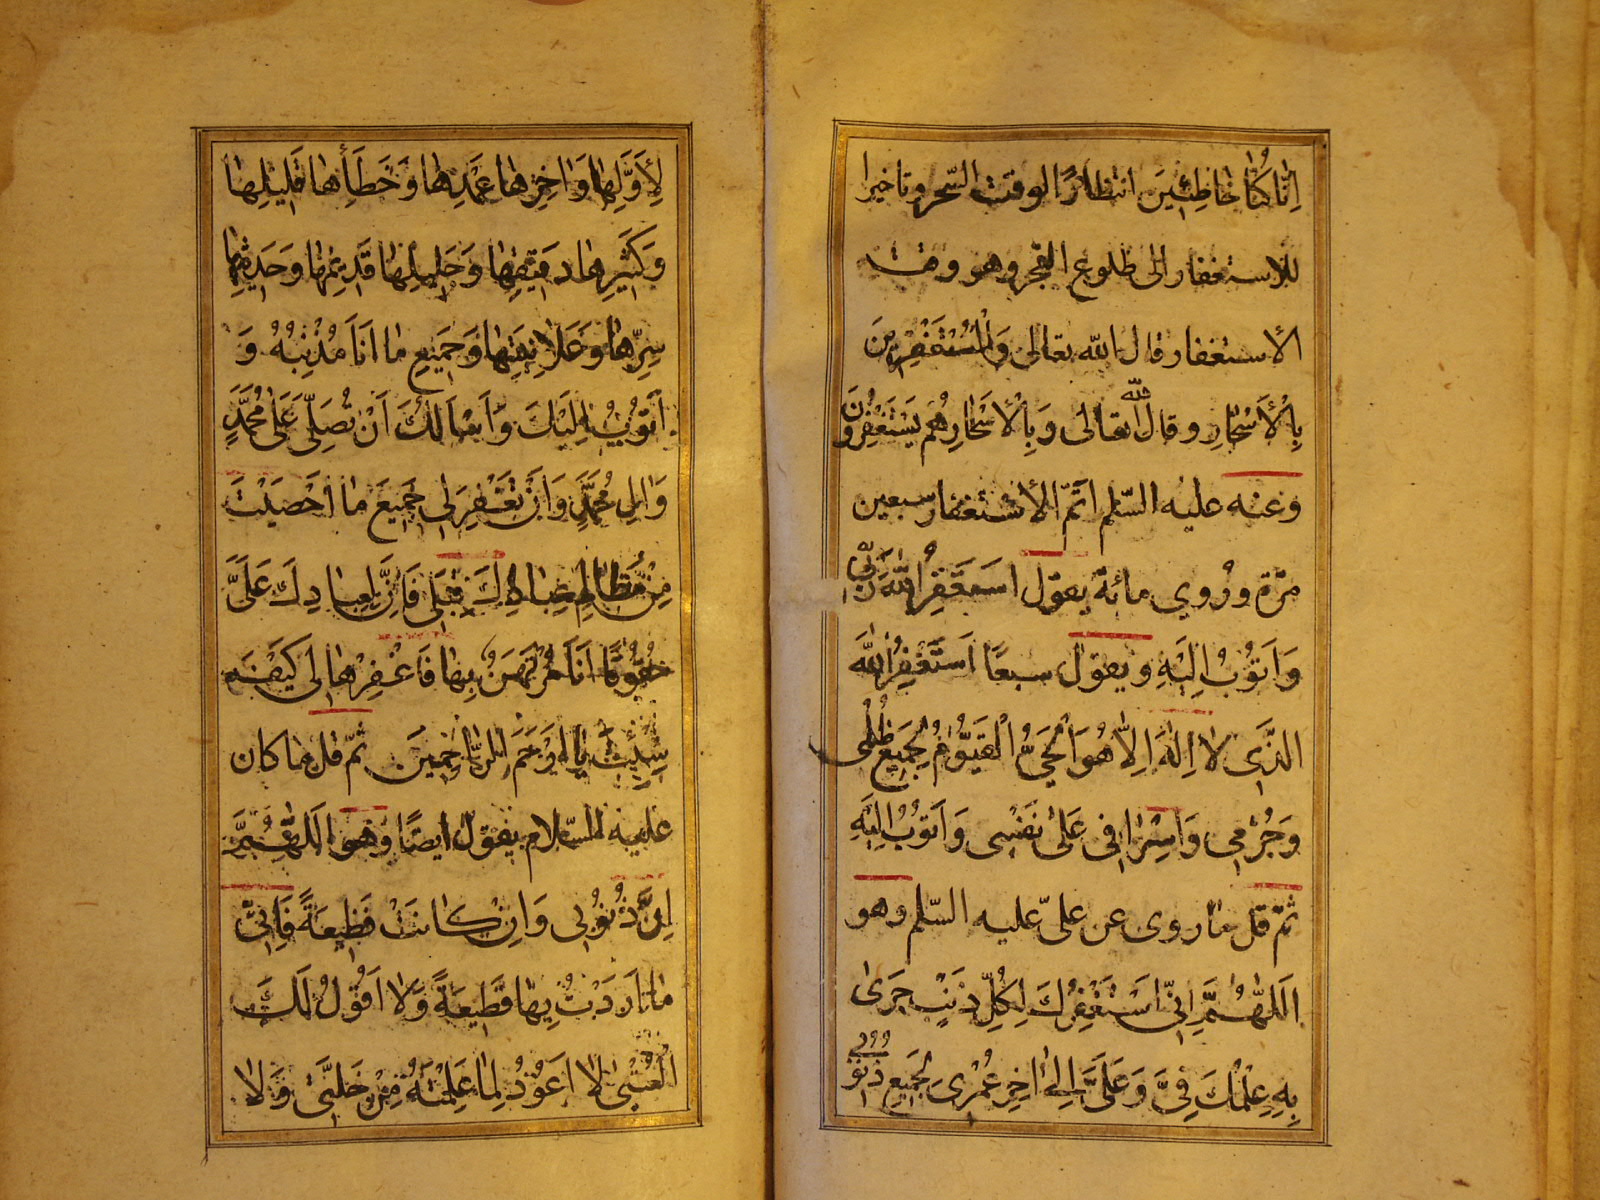 اِنّا كُنّا خاطِئينَ انتظارًا لوقت السّحر وتاخيرا
للاستغفار الى طلوع الفجر وهو وقت
الاستغفار قال الله تعالى وَالْمُسْتَغْفِرينَ
بِالْاَسْحارِ وقال الله تعالى وَبِالْاَسْحارِهُمْ يَسْتَغْفِرُونَ
وعنه عليه السّلم اتمّ الاستغفار سبعين
مرّة ورُوي مائة يقول اَسْتَغْفِرُ اللهَ رَبّي
وَاَتُوبُ اِلَيْهِ ويقول سبعًا اَسْتَغْفِرُ اللهَ
الَّذى لا اِلٰهَ اِلّا هُوَ الْحَىُّ الْقَيّوُمُ لِجَميعِ ظُلْمى
وَجُرْمي وَاِسْرافى عَلىٰ نَفْسى وَاَتوُبُ اِلَيْهِ
ثمّ قل ما روى عن علىّ عليه السّلم وهو
اَللّهُمَّ اِنّى اَسْتَغْفِرُكَ لِكُلِّ ذَنْبٍ جَرىٰ
بِهِ عِلْمُكَ فِىَّ وَعَلَىَّ اِلىٰ اخِرِ عُمْرى لِجَميعِ ذُنُوبى
لِاَوَّلِها وَاخِرِها عَمْدِها وَخَطَأِها قَليلِها
وَكَثيرِها دَقيقِها وَجَليلِها قَديمِها وَحَديثِها
سِرِّها وَعَلانِيَتِها وَجَميعِ ما اَنَا مُذْنِبُهُ وَ
اَتوُبُ اِلَيْكَ وَاَسْاَلُكَ اَنْ تُصَلِّىَ عَلىٰ مُحَمَّدٍ
وَالِ مُحَمَّدٍ وَاَنْ تَغْفِرَ لى جَميعَ ما اَحْصَيْتَ
مِنْ مَظالِمِ الْعِبادِ قِبَلى فَاِنَّ لِعِبادِكَ عَلَىَّ
حُقُوقًا اَنَا مُرْتَهَنٌ بِها فَاغْفِرْها لى كَيْفَ
شِئْتَ يا اَرْحَمَ الرّاحِمينَ ثمّ قل ما كان
عليه السّلام يقول ايضًا وهو اَللّهُمَّ
اِنَّ ذُنُوبى وَاِنْ كانَتْ فَظيعَةً فَاِنّى
ما اَرَدْتُ بِها قَطيعَةً وَلا اَقُولُ لَكَ
الْعُتْبىٰ لا اَعُودُ لِما عَلِمْتَهُ مِنْ خَلَّتى وَلا